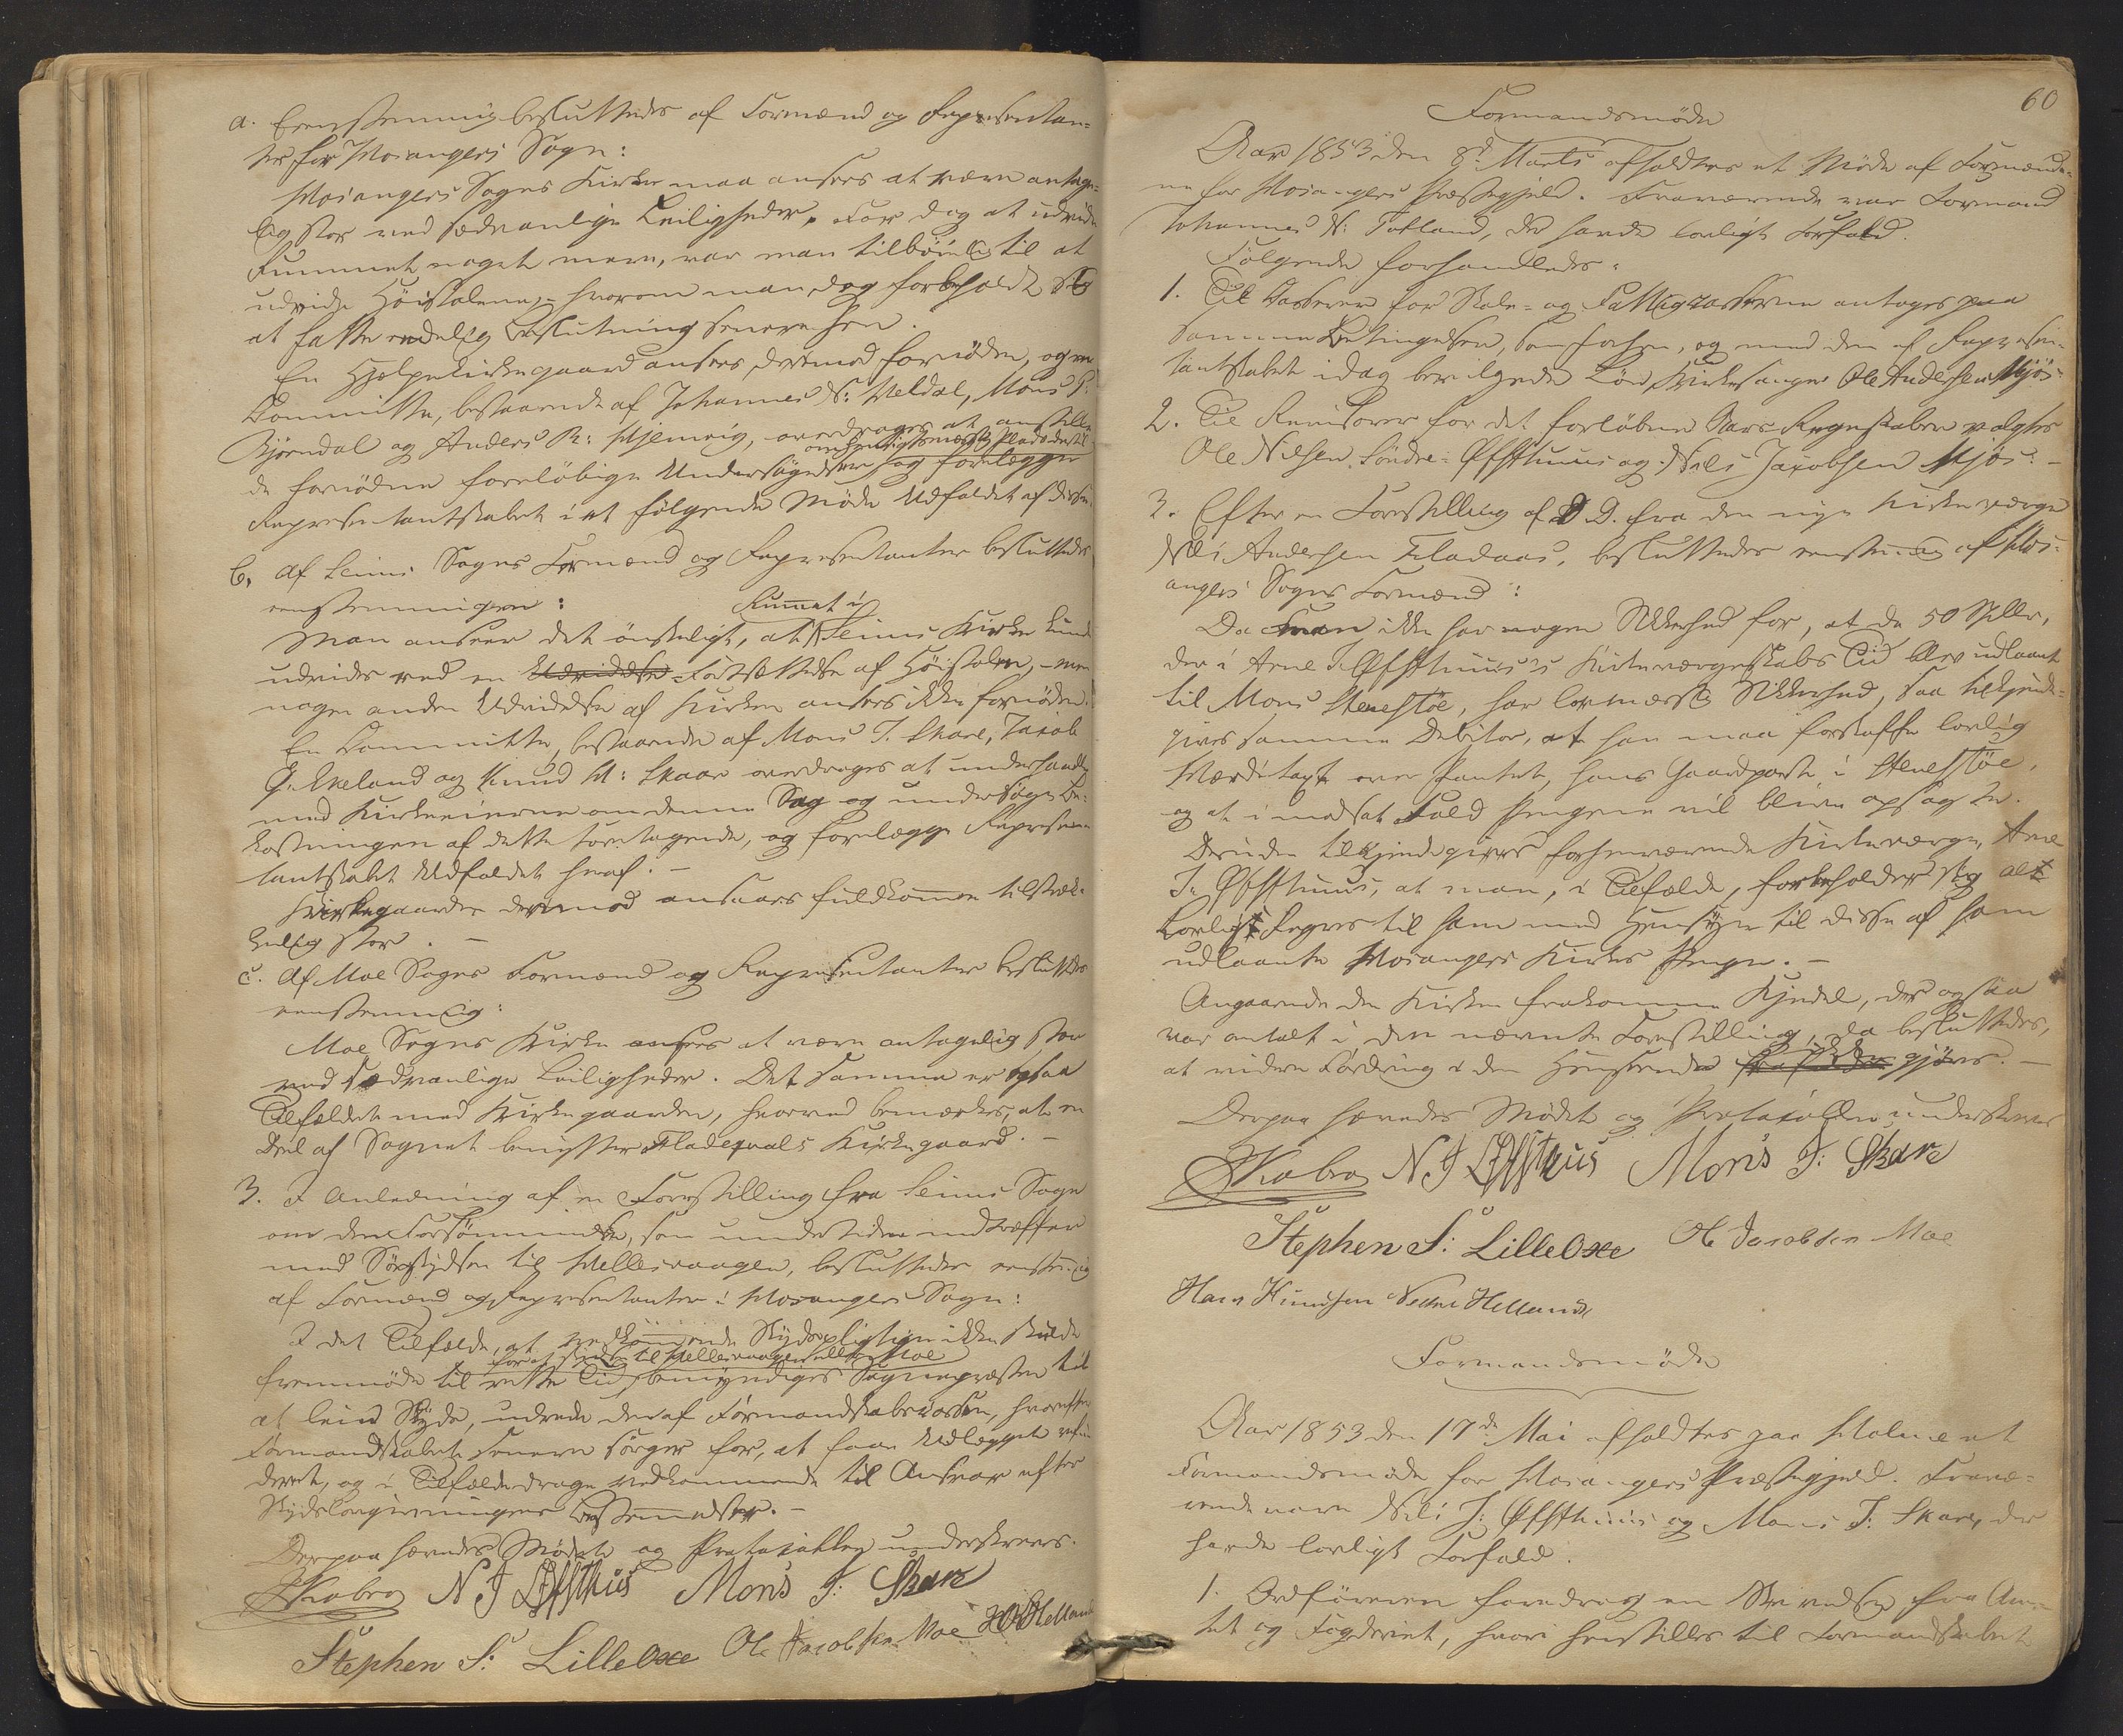 a. Eenstemmig besluttedes af Formænd og Repræsentan-
ter for Hosangers Sogn:
Hosangers Sogns Kirke maa ansees at være antage-
lig stor ved sædvanlige Leiligheder. For dog at udvide
Rummet noget mere, var man tilbøielig til at
udvide Høistolene, hvorom man dog forbeholdt sig
at fatte endelig Beslutning senerehen.
En Hjelpekirkegaard ansees derimod fornøden, og en
Committee, bestaaende af Johannes N: Meldal, Mons
Bjørndal og Anders R: Hjemvig, overdroges at anstille
om hensigtsmæssig Plads dertil
de fornødne foreløbige Undersøgelser og forelægge
Repræsentantskabet i et følgende Møde Udfaldet af disse.
b. Af Seims Sogns Formænd og Repræsentanter besluttedes
eenstemmigen:
Rummet i
Man anseer det ønskeligt, at Seims Kirke kunde
udvides ved en Udvidelse Fortsættelse af Høistolen, – men
nogen anden Udvidelse af Kirken ansees ikke fornøden.
En Committee, bestaaende af Mons J. Skare, Jacob
Q. Ekeland og Knud M: Skaar overdroges at underhandle
med Kirkeeierne om denne Sag og undersøge Be-
kostningen af dette Foretagende, og forelægge Repræsen-
tantskabet Udfaldet heraf. –
Kirkegaarden derimod ansaaes fuldkommen tilstræk-
kelig stor. –
c. Af Moe Sogns Formænd og Repræsentanter besluttedes
eenstemmig:
Moe Sogns Kirke ansees at være antagelig stor
ved sædvanlige Leiligheder. Det samme er ogsaa
Tilfældet med Kirkegaarden, hvorved bemærkes, at en
Deel af Sognet benytter Fladeqvals Kirkegaard. –
3. I Anledning af en Forestilling fra Seims Sogn
om den Forsømmelse, som undertiden indtræffer
med Skydsen til Hellesvaagen, besluttedes eenstemmig
af Formænd og Repræsentanter i Hosangers Sogn:
I det Tilfælde, at vedkommende Skydspligtige ikke skulde
for at skydse til Hellesvaagen eller Moe
fremmøde til rette Tid, bemyndiges Sognepræsten til
at leie Skyds, udrede den af Formandskabscassen, hvorefter
Formandskabet senere sørger for, at faae Udlægget refun-
deret, og i Tilfælde drage vedkommende til Ansvar efter
Skydslovgivningens Bestemmelser. –
Derpaa hævedes Mødet og Protocollen underskreves.
JKobro N J ØfstHus Mons J: Skare
Stephen S: LilleOxe Ole Jacobsen Moe HKHelland
60
Formandsmøde
Aar 1853 den 8de Marts afholdtes et Møde af Formænde-
ne for Hosangers Præstegjeld. Fraværende var Formand
Johannes N: Totland, der havde lovligt Forfald.
Følgende forhandledes:
1. Til Casserer for Skole- og Fattigcasserne antages paa
samme Betingelser, som forhen, og med den af Repræsen-
tantskabet idag bevilgede Løn, Kirkesanger Ole Andersen Mjøs.
2. Til Revisorer for det forløbne Aars Regnskaber valgtes
Ole Nilsen Søndre-Øfsthuus og Nils Jacobsen Mjøs. –
3. Efter en Forestilling af D. D. fra den nye Kirkeværge
Nils Andersen Fladaas, besluttedes eenstemmig af Hos-
angers Sogns Formænd:
Da man ikke har nogen Sikkerhed for, at de 50 Spdlr,
der i Arne J. Øfsthuus's Kirkeværgeskabs Tid blev udlaant
til Mons Stenestøe, har lovmæssig Sikkerhed, saa tilkjende-
gives samme Debitor, at han maa forskaffe lovlig
Værditaxt over Pantet, hans Gaardpart i Stenestøe,
og at i modsat Fald Pengene vil blive opsagte.
Desuden tilkjendegives forhenværende Kirkeværge, Arne
J. Øfsthuus, at man, i Tilfælde, forbeholder sig alt
Lovligt Regres til ham med Hensyn til disse af ham
udlaante Hosangers Kirkes Penge. –
Angaaende den Kirken frakomne Kjedel, der ogsaa
var omtalt i den nævnte Forestilling, da besluttedes,
ikke
at videre Fordring i den Henseende gjøres. –
Derpaa hævedes Mødet og Protocollen underskreves
JKobro N J ØfstHus Mons J: Skare
Stephen S: LilleOxe Ole Jacobsen Moe
Hans Knudsen Nedre Helland
Formandsmøde
Aar 1853 den 17de Mai afholdtes paa Holme et
Formandsmøde for Hosangers Præstegjeld. Fravæ-
rende vare Nils J: Øfsthuus og Mons J: Skare, der
havde lovligt Forfald.
1. Ordføreren foredrog en Skrivelse fra Am-
tet og Fogderiet, hvori henstilles til Formandskabet